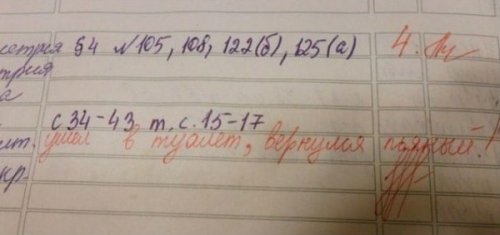 метрия §4 №105, 108, 122(б), 125(а) 4.
трия
а
с 34-43 т, с. 15-17
ушел в туалет, вернулся пьяный!